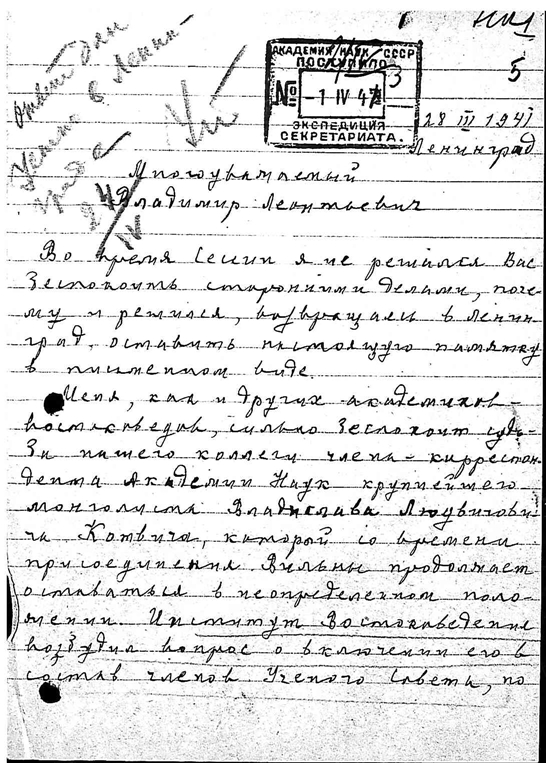 НИ
5
Ответ дан
Устно в Ленин-
граде
24/IV
АКАДЕМИЯ НАУК СССР
ПОСТУПИЛО
3
№ -1 IV 41
ЭКСПЕДИЦИЯ
СЕКРЕТАРИАТА.
28 III 1941
Ленинград
Многоуважаемый
Владимир Леонтьевич
Во время Сессии я не решился Вас
беспокоить сторонними делами, поче-
му и решился, возвращаясь в Ленин-
град, оставить настоящую памятку
в письменном виде.
Меня, как и других академиков-
востоковедов, сильно беспокоит судь-
ба нашего коллеги члена-корреспон-
дента Академии Наук крупнейшего
монголиста Владислава Людвигови-
ча Котвича, который со времени
присоединения Вильны продолжает
оставаться в неопределенном поло-
жении. Институт Востоковедения
возбудил вопрос о включении его в
состав членов Ученого Совета, но